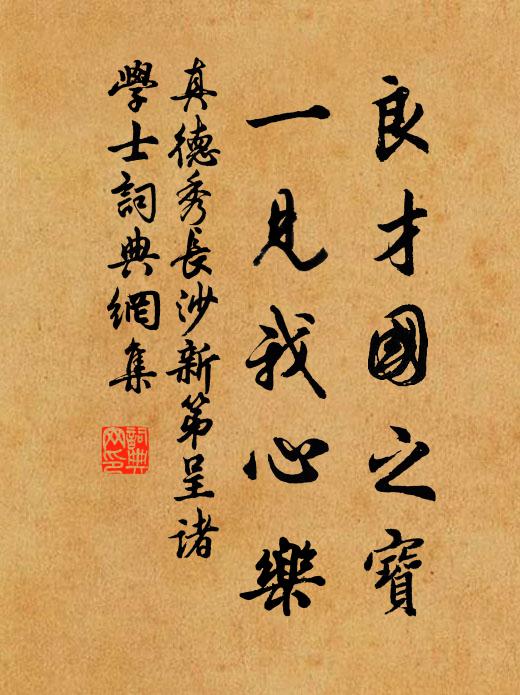 良才國之寶
一見我心樂
真德秀長沙新第呈諸
學士詞典網集
詞典網印